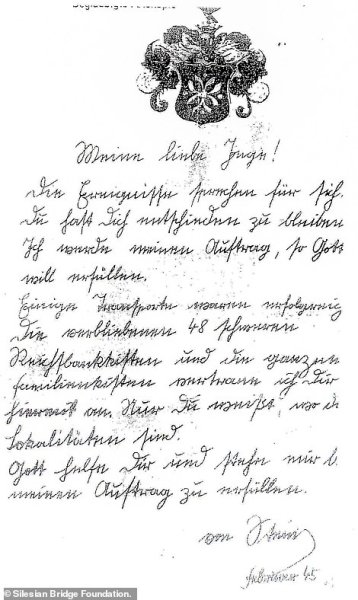 Meine liebe Inge!
Die Ereignisse sprechen für sich.
Du hast Dich entschieden zu bleiben
Ich werde meinen Auftrag, so Gott
will erfüllen.
Einige Transporte waren erfolgreic
Die verbliebenen 48 schweren
Reichsbankkisten und die ganzen
Familienkisten vertraue ich Dir
hiermit an. Nur Du weißt, wo d
Lokalitäten sind.
Gott helfe Dir und stehe mir b
meinen Auftrag zu erfüllen.
von Stein
Februar 45
© Silesian Bridge Foundation.